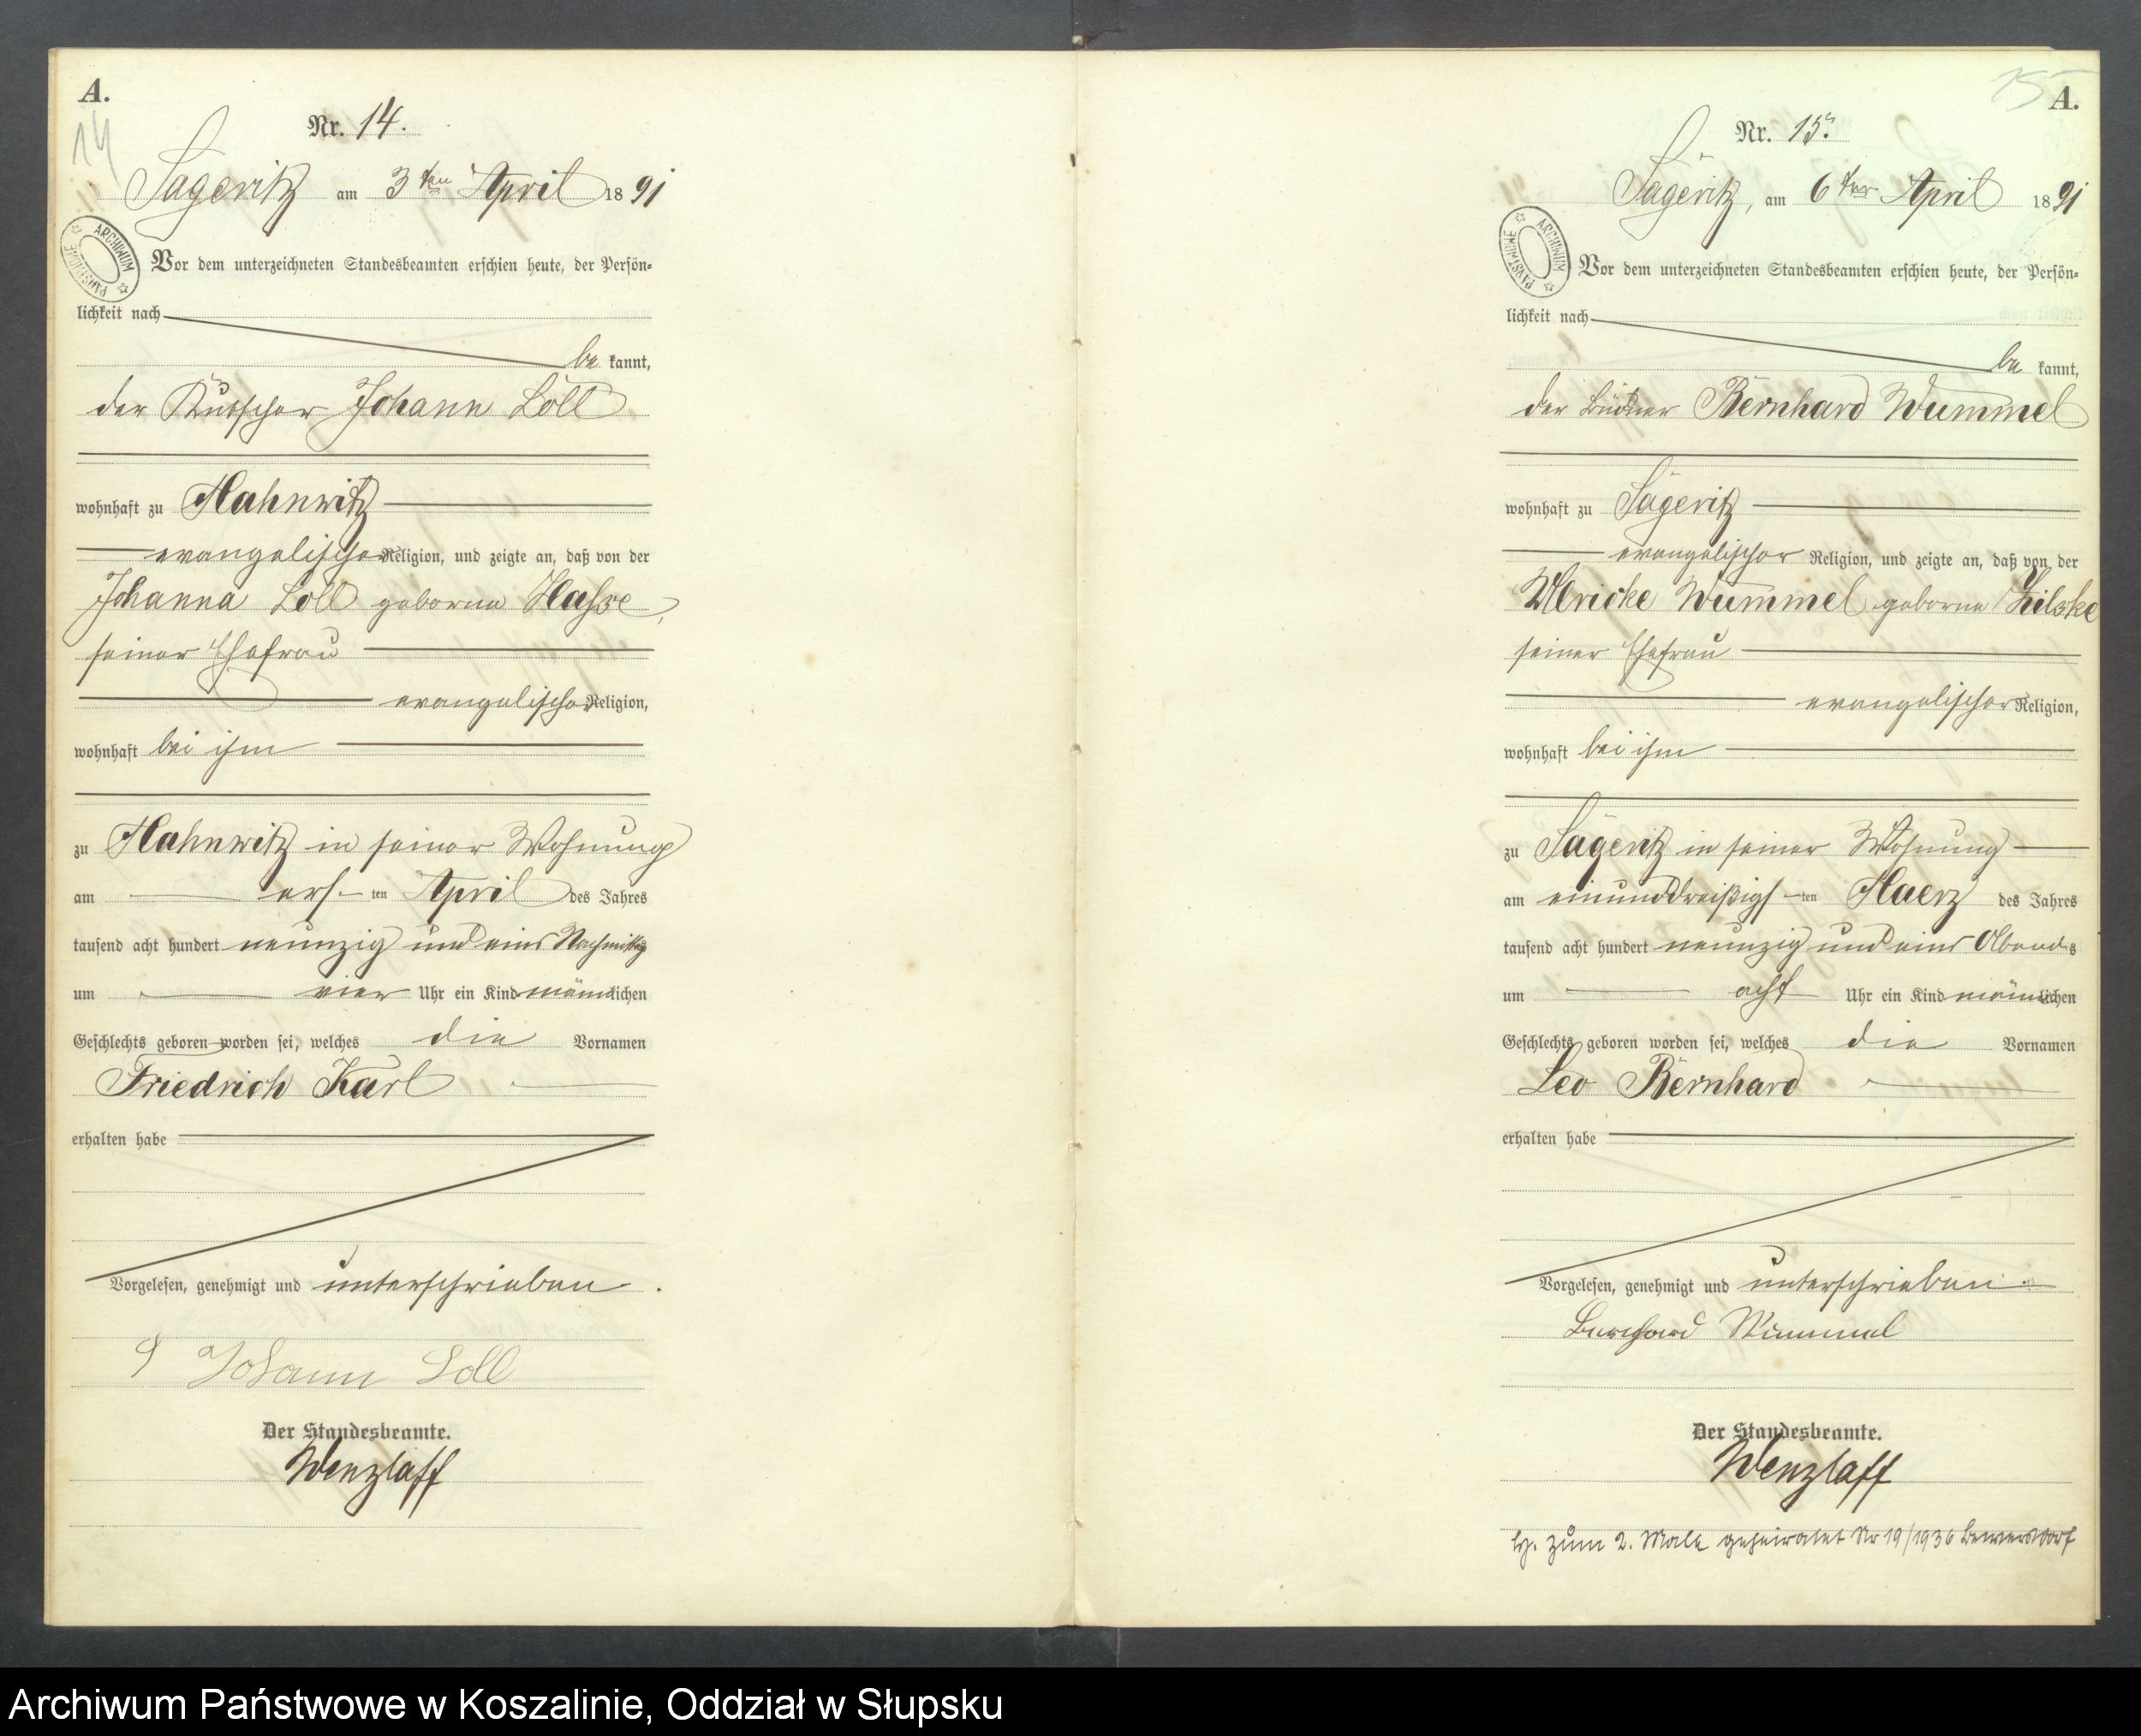 A.
14
Nr. 14.
Sageritz am 3ten April 1891
ARCHIWUM PAŃSTWOWE
Vor dem unterzeichneten Standesbeamten erschien heute, der Persön=
lichkeit nach
be kannt,
der Kutscher Johann Loll
wohnhaft zu Hahnwitz
evangelischer Religion, und zeigte an, daß von der
Johanna Loll geborne Hasse,
seiner Ehefrau
evangelischer Religion,
wohnhaft bei ihm
zu Hahnwitz in seiner Wohnung
am ers- ten April des Jahres
tausend acht hundert neunzig und eins Nachmittags
um vier Uhr ein Kind männlichen
Geschlechts geboren worden sei, welches die Vornamen
Friedrich Karl
erhalten habe
Vorgelesen, genehmigt und unterschrieben.
Johann Loll
Der Standesbeamte.
Wenzlaff
15 A.
Nr. 15.
Sageritz, am 6ten April 1891
ARCHIWUM PAŃSTWOWE
Vor dem unterzeichneten Standesbeamten erschien heute, der Persön=
lichkeit nach
be kannt,
der Büdner Bernhard Wummel
wohnhaft zu Sageritz
evangelischer Religion, und zeigte an, daß von der
Ulricke Wummel geborne
seiner Ehefrau
evangelischer Religion,
wohnhaft bei ihm
zu Sageritz in seiner Wohnung
am einunddreißigs-ten Maerz des Jahres
tausend acht hundert neunzig und eins Abends
um acht Uhr ein Kind männlichen
Geschlechts geboren worden sei, welches die Vornamen
Leo Bernhard
erhalten habe
Vorgelesen, genehmigt und unterschrieben
Bernhard Wummel
Der Standesbeamte.
Wenzlaff
zum 2. Male geheiratet Nr 19/1936 Bewersdorf
Archiwum Państwowe w Koszalinie, Oddział w Słupsku